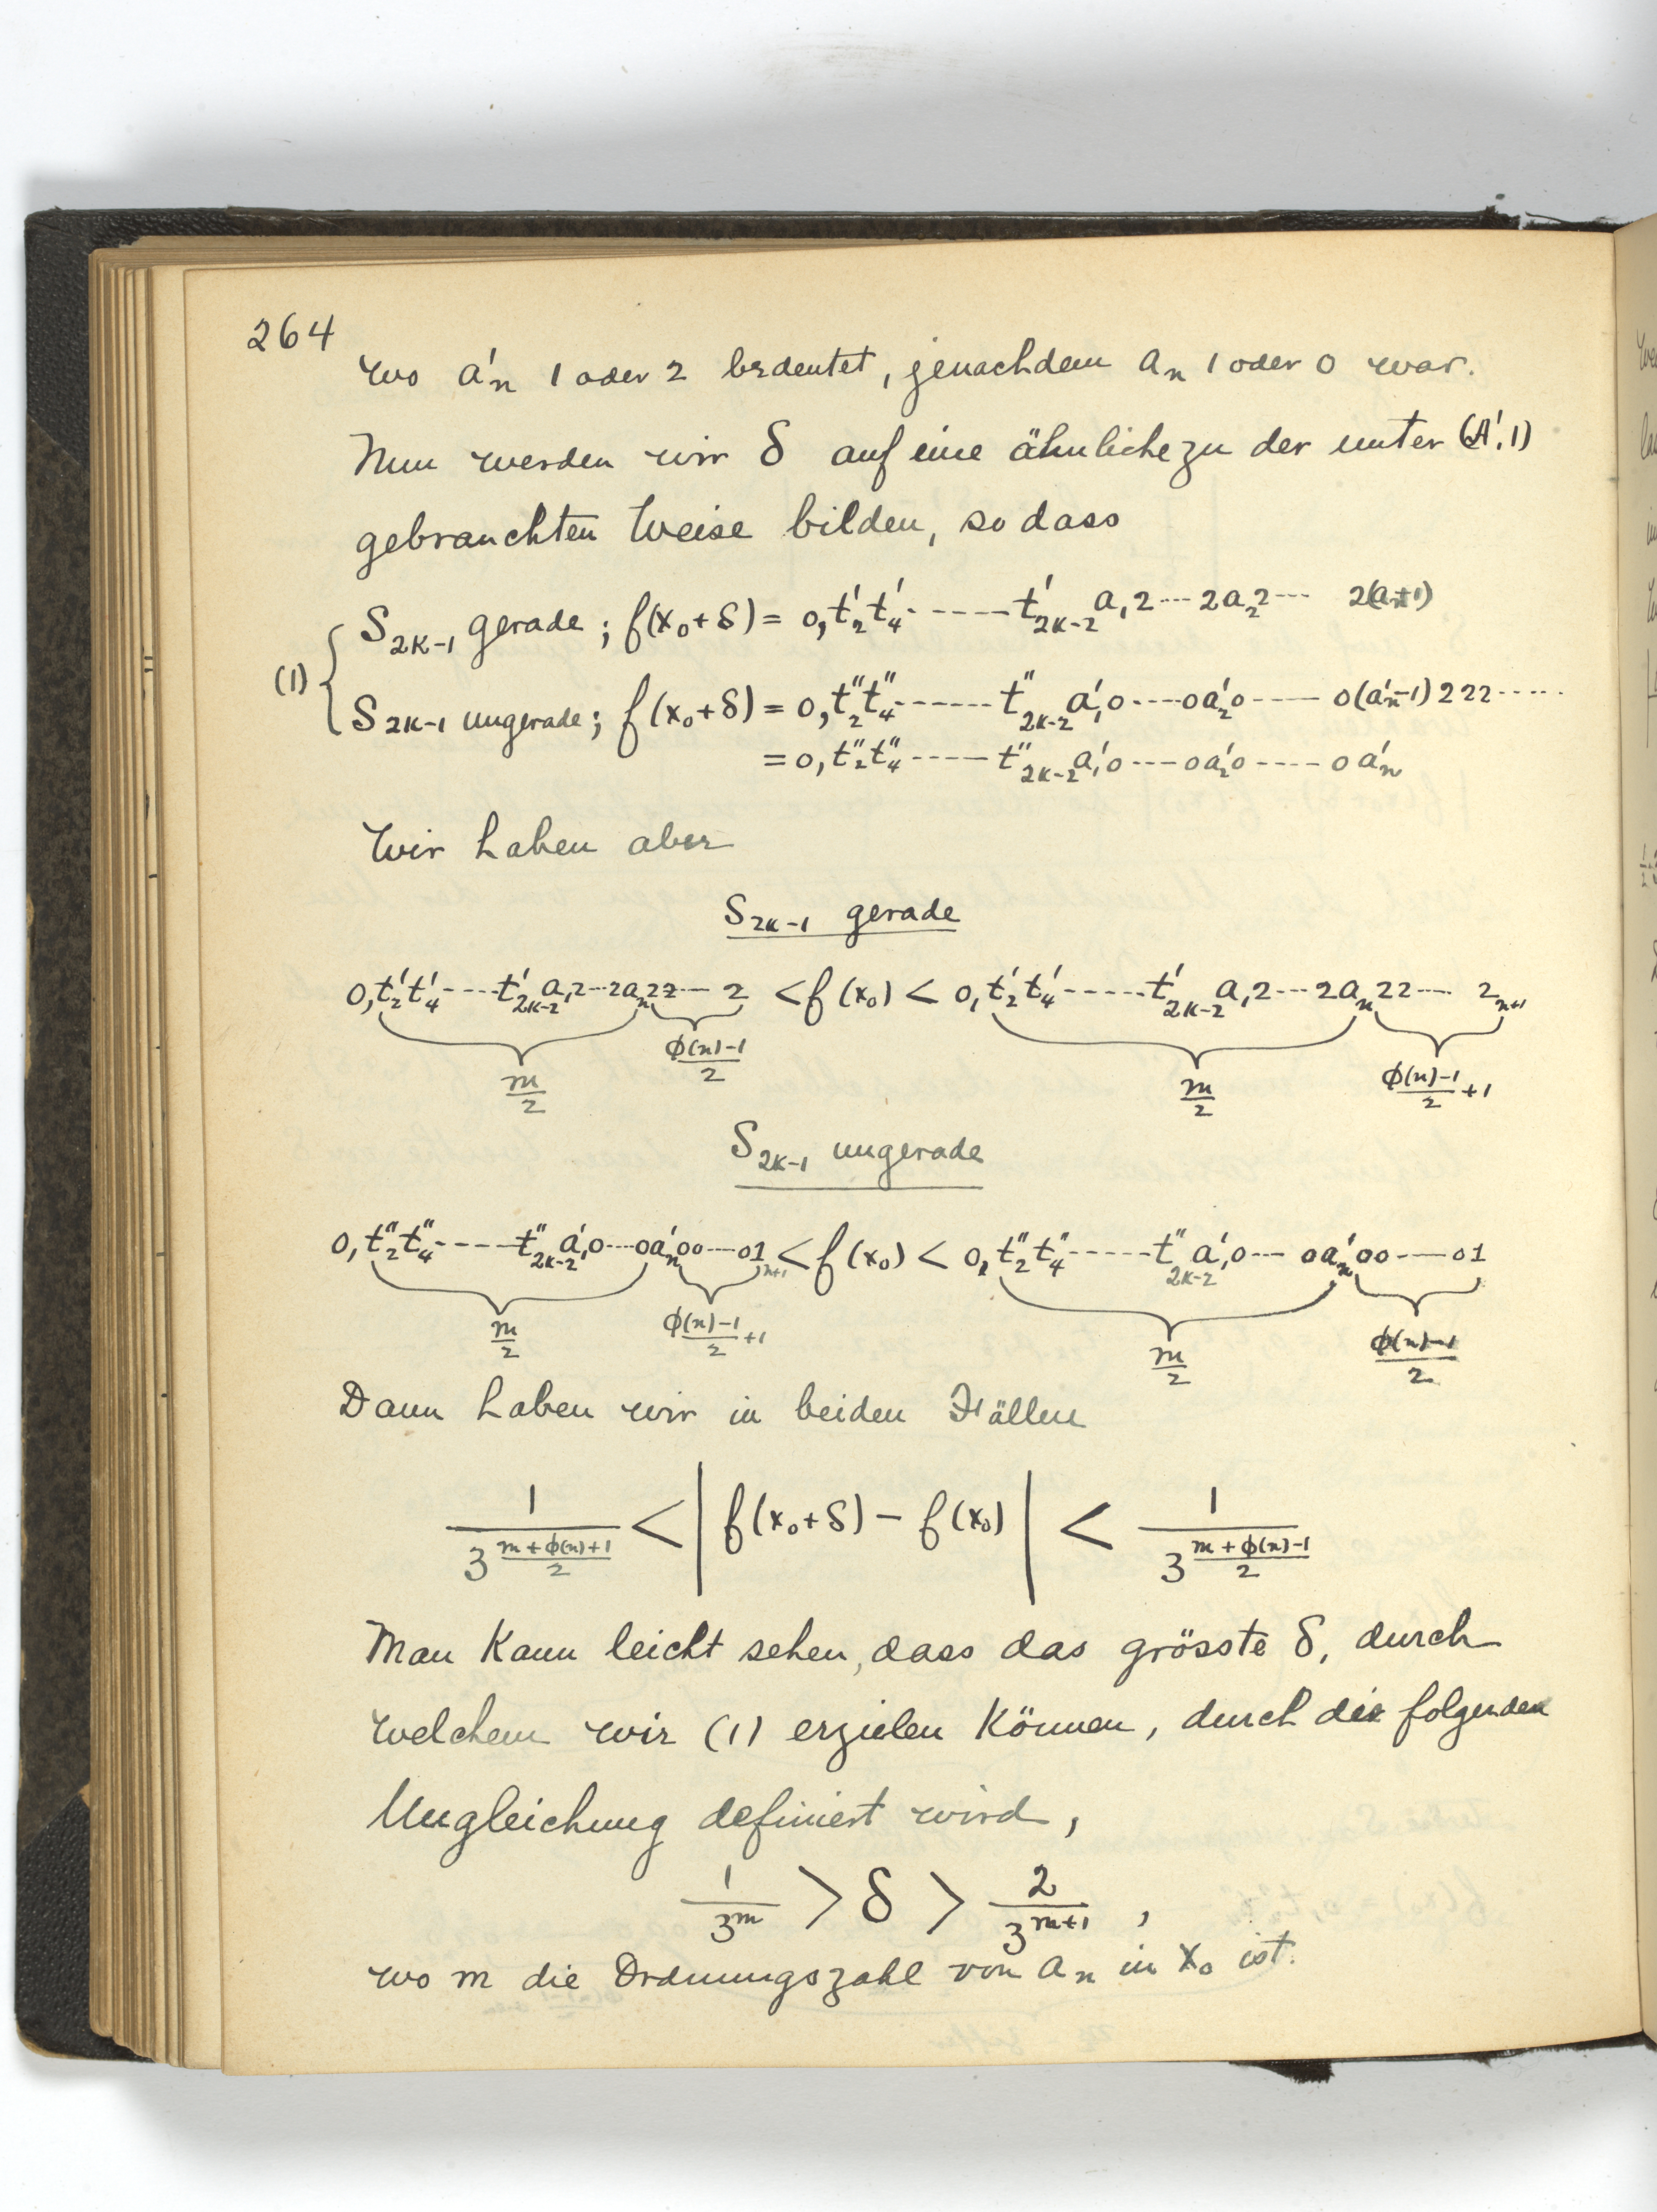 264
wo a'ₙ 1 oder 2 bedeutet, jenachdem aₙ 1 oder 0 war.
Nun werden wir δ auf eine ähnliche zu der unter (A'.1)
gebrauchten Weise bilden, so dass
(1) { S₂ₖ₋₁ gerade; f(x₀+δ) = 0,t'₂t'₄------t'₂ₖ₋₂a₁2---2a₂2--- 2(aₙ+1)
S₂ₖ₋₁ ungerade; f(x₀+δ) = 0,t''₂t''₄------t''₂ₖ₋₂a'₁0----0a'₂0---- 0(a'ₙ-1)222-----
= 0,t''₂t''₄-----t''₂ₖ₋₂a'₁0---0a'₂0----0a'ₙ
Wir haben aber
S₂ₖ₋₁ gerade
0,t'₂t'₄----t'₂ₖ₋₂a₁2--2aₙ22--- 2 < f(x₀) < 0,t'₂t'₄-----t'₂ₖ₋₂a₁2---2aₙ22--- 2ₙ₊₁
m/2 (φ(n)-1)/2 m/2 (φ(n)-1)/2 +1
S₂ₖ₋₁ ungerade
0,t''₂t''₄-----t''₂ₖ₋₂a'₁0---0a'ₙ00---01ₙ₊₁ < f(x₀) < 0,t''₂t''₄-----t''₂ₖ₋₂a'₁0--- 0a'ₙ00----01
m/2 (φ(n)-1)/2 +1 m/2 (φ(n)-1)/2
Dann haben wir in beiden Fällen
1/3^((m+φ(n)+1)/2) < | f(x₀+δ) - f(x₀) | < 1/3^((m+φ(n)-1)/2)
Man kann leicht sehen, dass das grösste δ, durch
welchem wir (1) erzielen können, durch die folgenden
Ungleichung definiert wird,
1/3^m > δ > 2/3^(m+1) ,
wo m die Ordnungszahl von aₙ in x₀ ist.